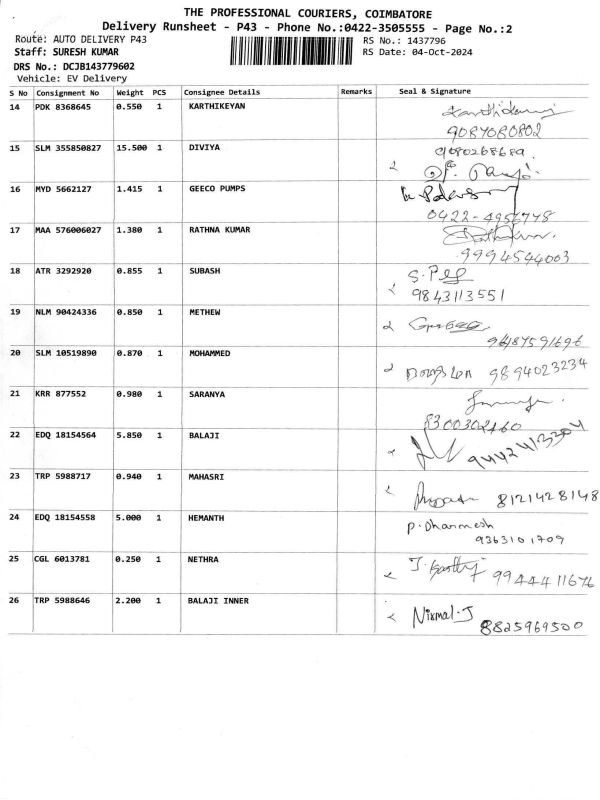 THE PROFESSIONAL COURIERS, COIMBATORE
Delivery Runsheet - P43 - Phone No.:0422-3505555 - Page No.:2
Route: AUTO DELIVERY P43 RS No.: 1437796
Staff: SURESH KUMAR RS Date: 04-Oct-2024
DRS No.: DCJB143779602
Vehicle: EV Delivery
S No Consignment No Weight PCS Consignee Details Remarks Seal & Signature
14 PDK 8368645 0.550 1 KARTHIKEYAN
9087080802
15 SLM 355850827 15.500 1 DIVIYA
16 MYD 5662127 1.415 1 GEECO PUMPS
0422-4956778
17 MAA 576006027 1.380 1 RATHNA KUMAR
9994544003
18 ATR 3292920 0.855 1 SUBASH
9843113551
19 NLM 90424336 0.850 1 METHEW
9487591696
20 SLM 10519890 0.870 1 MOHAMMED
9894023234
21 KRR 877552 0.980 1 SARANYA
22 EDQ 18154564 5.850 1 BALAJI
9442413304
23 TRP 5988717 0.940 1 MAHASRI
8121428148
24 EDQ 18154558 5.000 1 HEMANTH P. Dharmesh
9363101709
25 CGL 6013781 0.250 1 NETHRA
9944411676
26 TRP 5988646 2.200 1 BALAJI INNER Nirmal.J
8825969500